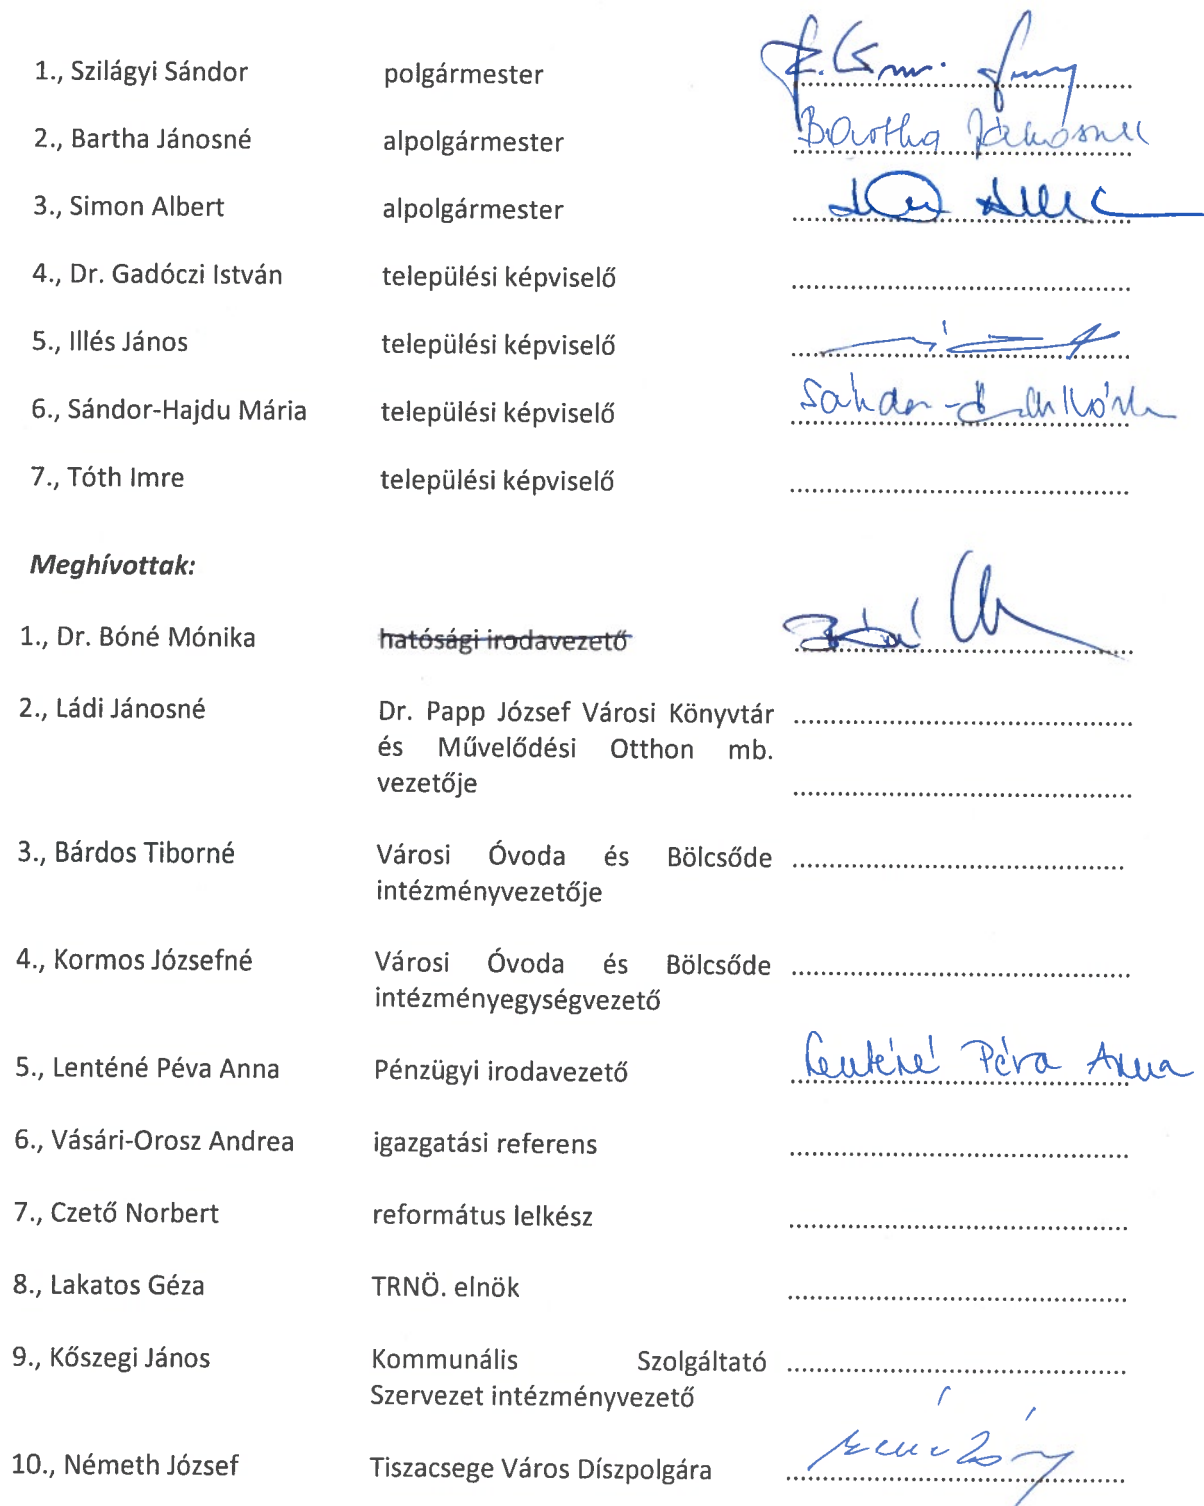 1., Szilágyi Sándor polgármester ........................................
2., Bartha Jánosné alpolgármester Bartha Jánosné
3., Simon Albert alpolgármester ........................................
4., Dr. Gadóczi István települési képviselő ........................................
5., Illés János települési képviselő ........................................
6., Sándor-Hajdu Mária települési képviselő Sándor-
7., Tóth Imre települési képviselő ........................................
Meghívottak:
1., Dr. Bóné Mónika hatósági irodavezető ........................................
2., Ládi Jánosné Dr. Papp József Városi Könyvtár ........................................
és Művelődési Otthon mb.
vezetője ........................................
3., Bárdos Tiborné Városi Óvoda és Bölcsőde ........................................
intézményvezetője
4., Kormos Józsefné Városi Óvoda és Bölcsőde ........................................
intézményegységvezető
5., Lenténé Péva Anna Pénzügyi irodavezető Lenténé Péva Anna
6., Vásári-Orosz Andrea igazgatási referens ........................................
7., Czető Norbert református lelkész ........................................
8., Lakatos Géza TRNÖ. elnök ........................................
9., Kőszegi János Kommunális Szolgáltató ........................................
Szervezet intézményvezető
10., Németh József Tiszacsege Város Díszpolgára ........................................